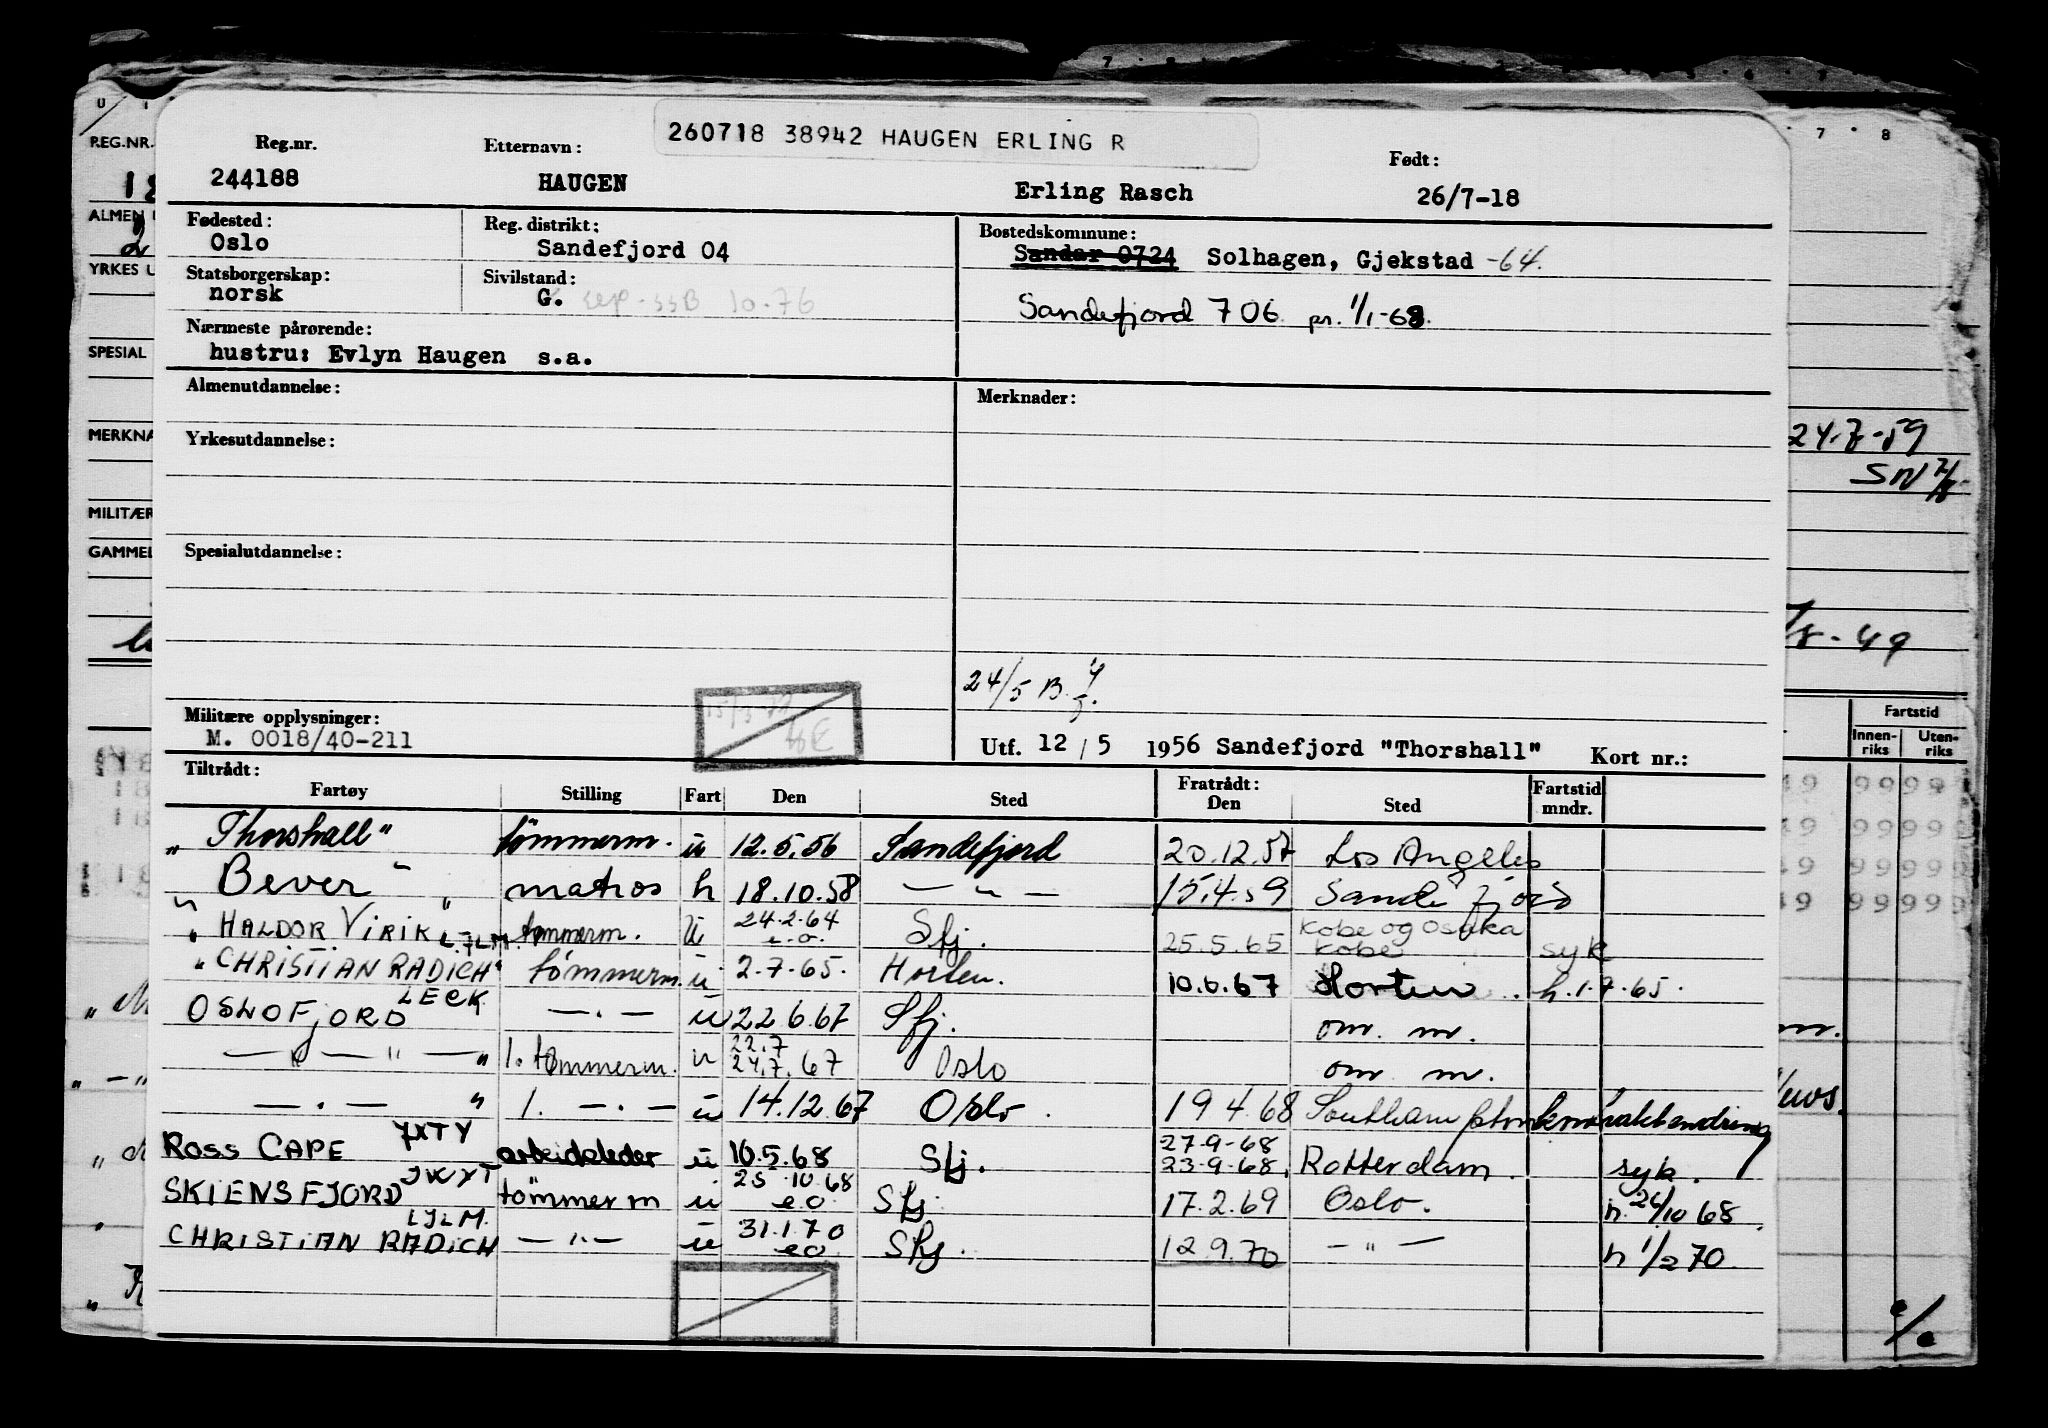 260718 38942 HAUGEN ERLING R
Reg.nr. Etternavn: Født:
244188 HAUGEN Erling Rasch 26/7-18
Fødested: Reg. distrikt: Bostedskommune:
Oslo Sandefjord 04 Sandar 0724 Solhagen, Gjekstad -64.
Statsborgerskap: Sivilstand:
norsk G. sep-SSB 10-76 Sandefjord 706 pr. 1/1-68.
Nærmeste pårørende:
hustru: Evlyn Haugen s.a.
Almenutdannelse: Merknader:
Yrkesutdannelse:
Spesialutdannelse:
24/5 B.
Militære opplysninger:
M. 0018/40-211
Utf. 12/5 1956 Sandefjord "Thorshall" Kort nr.:
Tiltrådt: Fratrådt:
Fartøy Stilling Fart Den Sted Den Sted Fartstid mndr.
"Thorshall" tömmerm. u 12.5.56 Sandefjord 20.12.57 Los Angeles
"Bever" matros h 18.10.58 — " — 15.4.59 Sandefjord
"HALDOR VIRIK" tømmerm. u 24.2.64 e.o. Sfj. 25.5.65 Kobe og Osaka Kobe syk
LJLM
"CHRISTIAN RADICH" tömmerm. u 2.7.65. Horten. 10.6.67 Horten h.1.7.65.
LECK
OSLOFJORD — . — u 22 6.67 Sfj. om. m.
— " — " — " 1. tømmerm. u 22.7 24.7.67 Oslo om m.
— . — " 1. — . — u 14.12.67 Oslo. 19 4.68 Southampton
JXTY
ROSS CAPE arbeidsleder u 10.5.68 Sfj. 27.9-68 23.9-68. Rotterdam. syk.
JWXT
SKIENSFJORD tömmerm u 25 10 68 e.o Sfj 17.2.69 Oslo. h. 24/10 68.
LJLM.
CHRISTIAN RADICH — " — u 31.1.70 e.o Sfj. 12.9.70 — " — h 1/2 70
U 1
REG.NR.
ALMEN U
YRKES U
SPESIAL
MERKNA
MILITÆR
GAMMEL
7 8
24-7-59
SN
49
Fartstid
Innen-riks Uten-riks